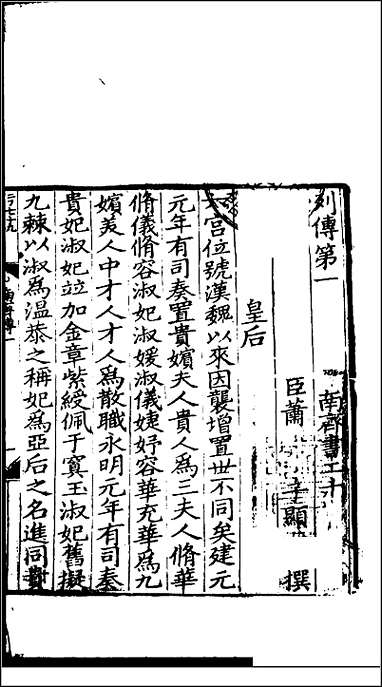 列傳第一　南齊書二十
臣蕭子顯撰
皇后
六宮位號漢魏以來因襲增置世不同矣建元
元年有司奏置貴嬪夫人貴人爲三夫人脩華
脩儀脩容淑妃淑媛淑儀婕妤容華充華爲九
嬪美人中才人才人爲散職永明元年有司奏
貴妃淑妃並加金章紫綬佩于窴玉淑妃舊擬
九棘以淑爲溫恭之稱妃爲亞后之名進同貴